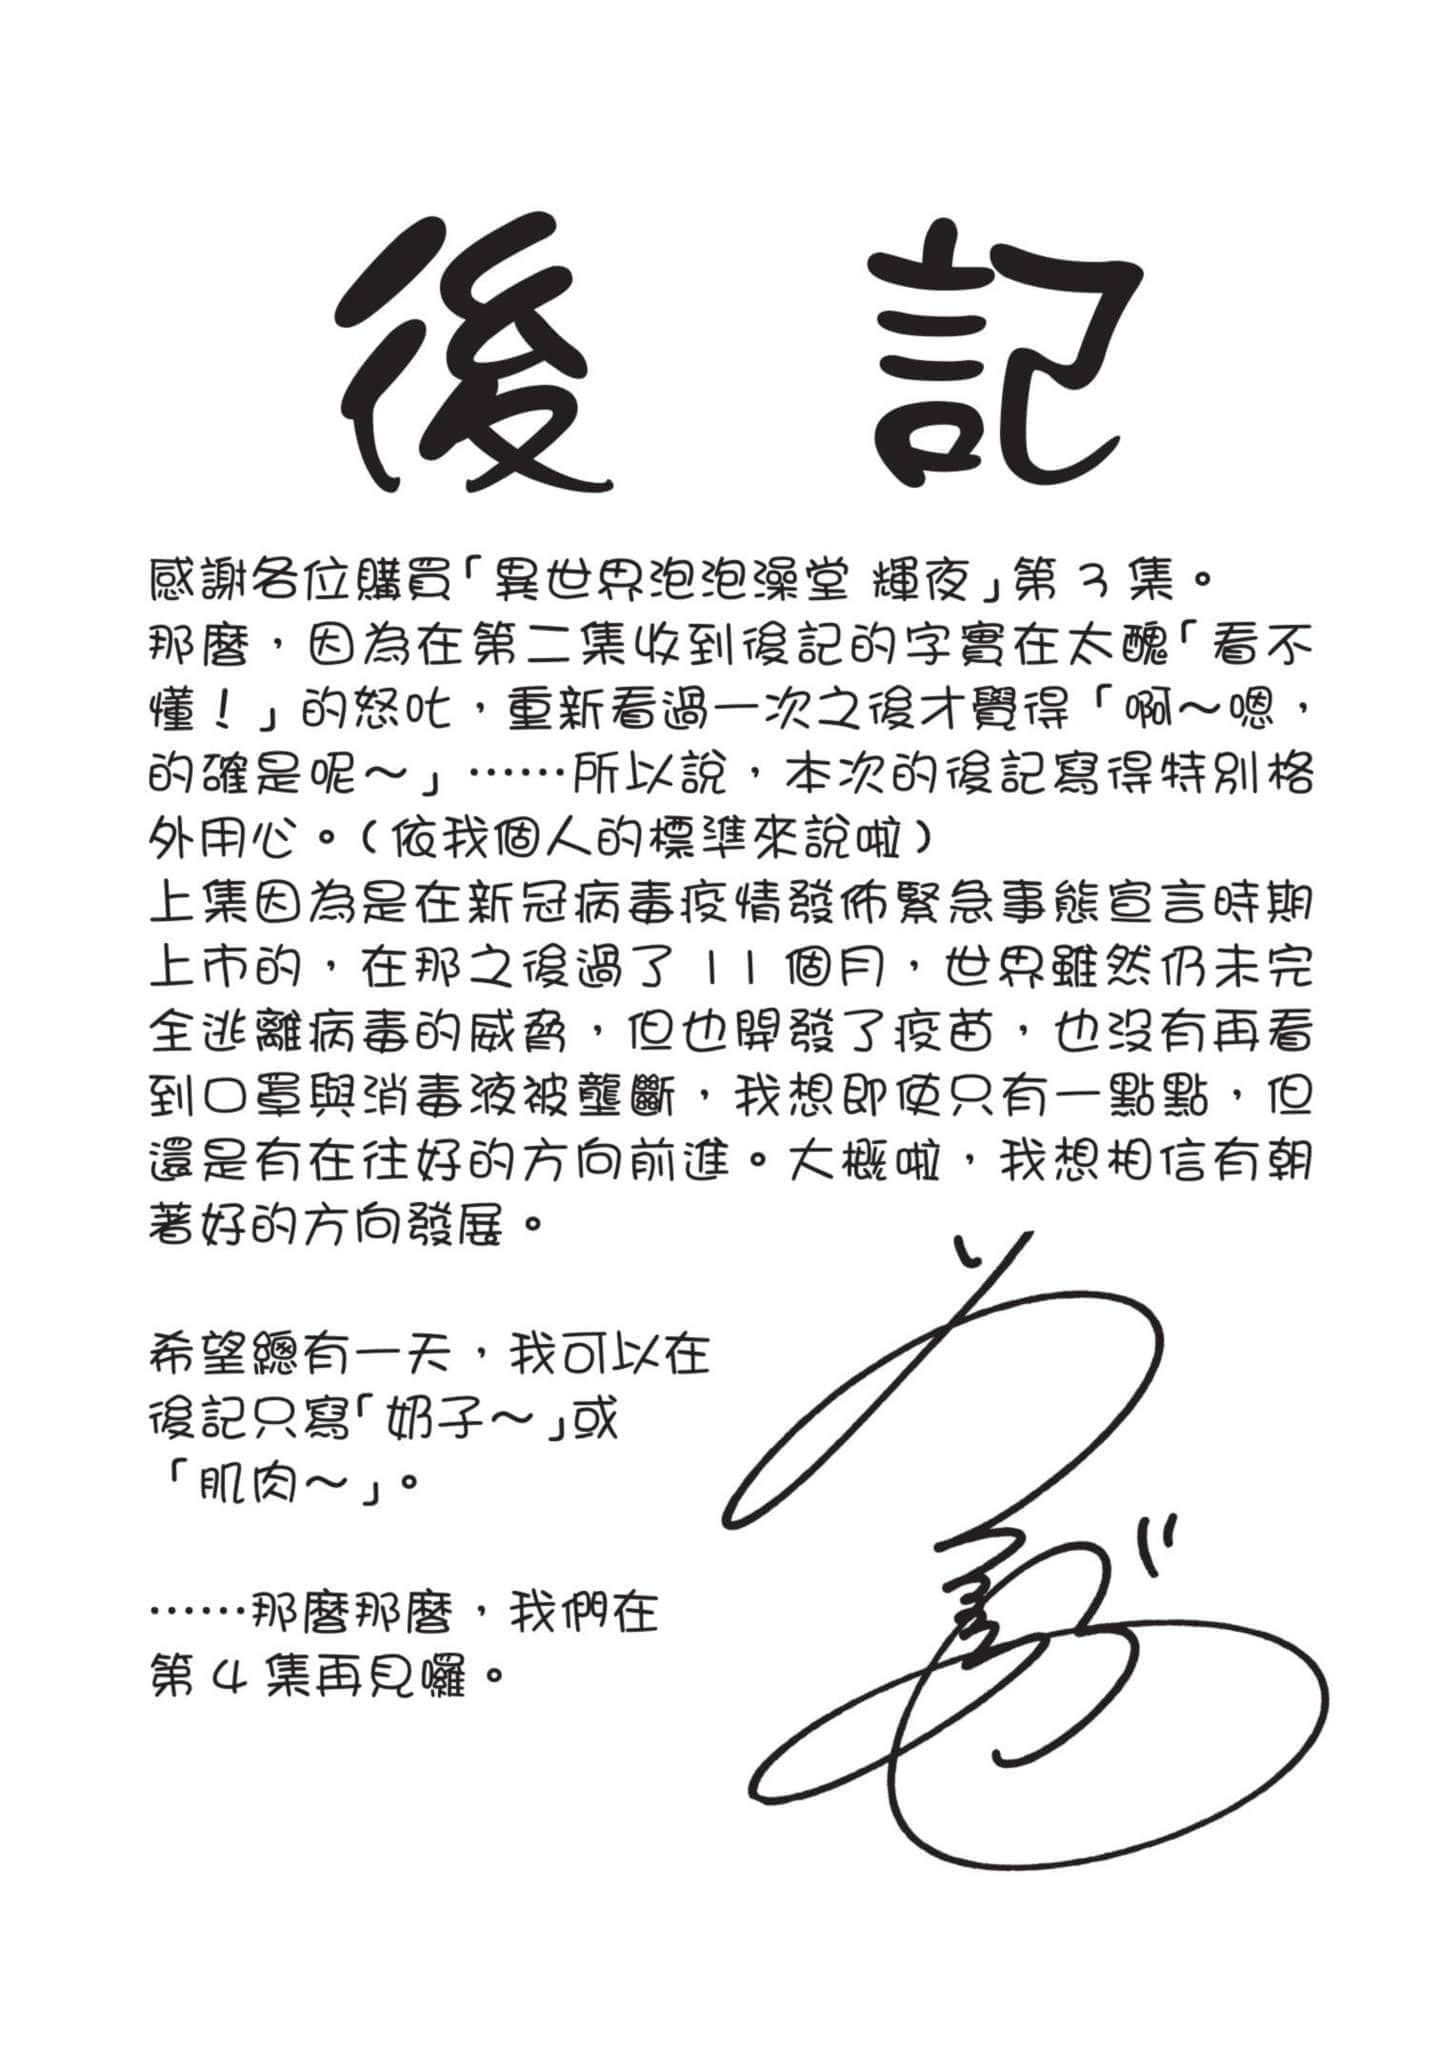 後 記
感謝各位購買「異世界泡泡澡堂 輝夜」第 3 集。
那麼，因為在第二集收到後記的字實在太醜「看不
懂！」的怒吒，重新看過一次之後才覺得「啊～嗯，
的確是呢～」……所以說，本次的後記寫得特別格
外用心。(依我個人的標準來說啦)
上集因為是在新冠病毒疫情發佈緊急事態宣言時期
上市的，在那之後過了 11 個月，世界雖然仍未完
全逃離病毒的威脅，但也開發了疫苗，也沒有再看
到口罩與消毒液被壟斷，我想即使只有一點點，但
還是有在往好的方向前進。大概啦，我想相信有朝
著好的方向發展。
希望總有一天，我可以在
後記只寫「奶子～」或
「肌肉～」。
……那麼那麼，我們在
第 4 集再見囉。